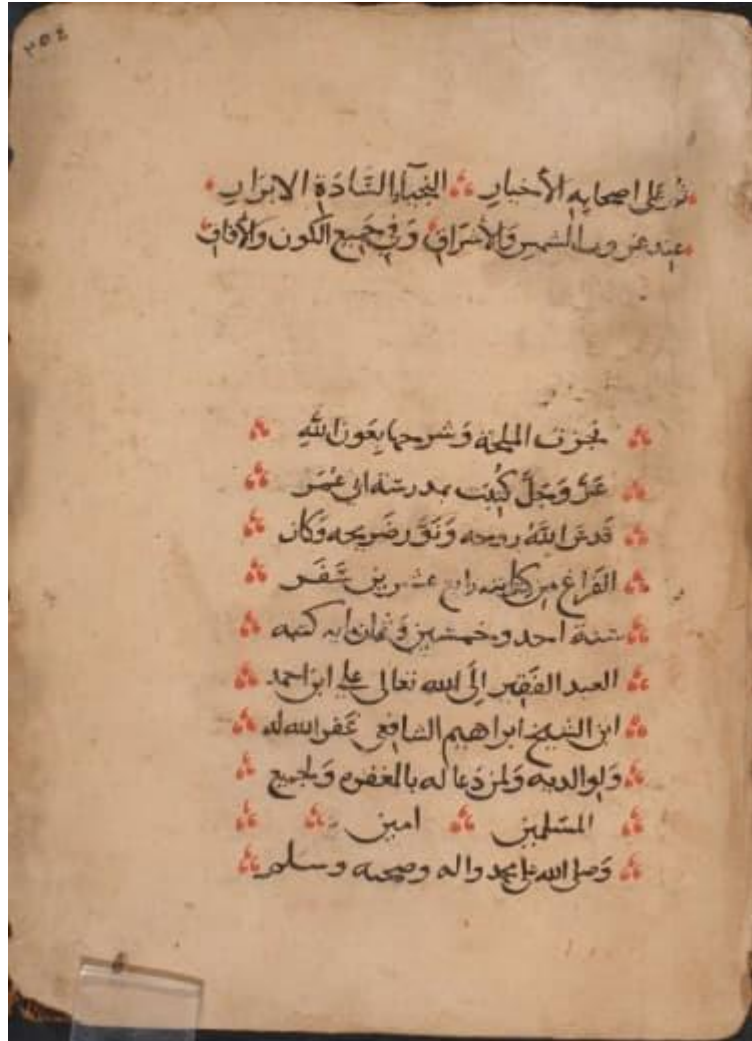 ٢٥٤
ثم على اصحابه الأخيار النجباء السَّادَةِ الابرَارِ
عِند غروب الشمسِ وَالأشرَاقِ وَفي جَميعِ الكون وَالأفاقِ
نجزت الملحة وَشرحها بِعَون اللهِ
عَزَّ وَجَلَّ كُتِبَت بمدرسَة ابي عُمَر
قَدسَ اللهُ روحه وَنَوَّر ضَريحه وَكان
الفَراغ مِن كتابته رابع عشرين صَفَر
سَنة احد وخمسين وَثمانمايه كتبه
العبد الفَقير اِلَى الله تعالى علي ابن احمد
ابن الشيخ ابراهيم الشافعي غَفر الله له
وَلِوالديه وَلمن دَعا له بالمغفره وَلجميع
المسَلمين امين
وَصلى الله على محمد واله وصحبه وسلم